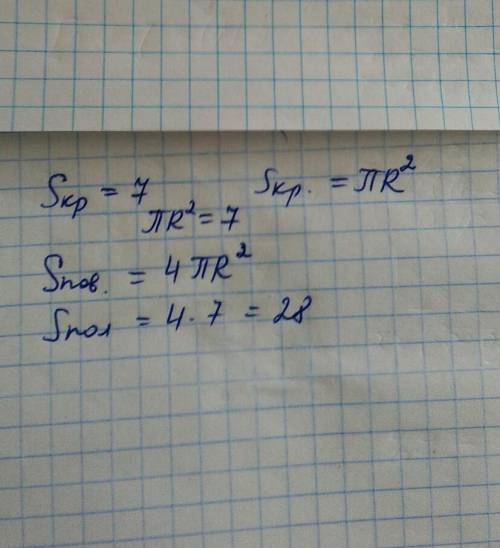 Sкр = 7 Sкр. = πR²
πR² = 7
Sпов. = 4πR²
Sпол = 4·7 = 28